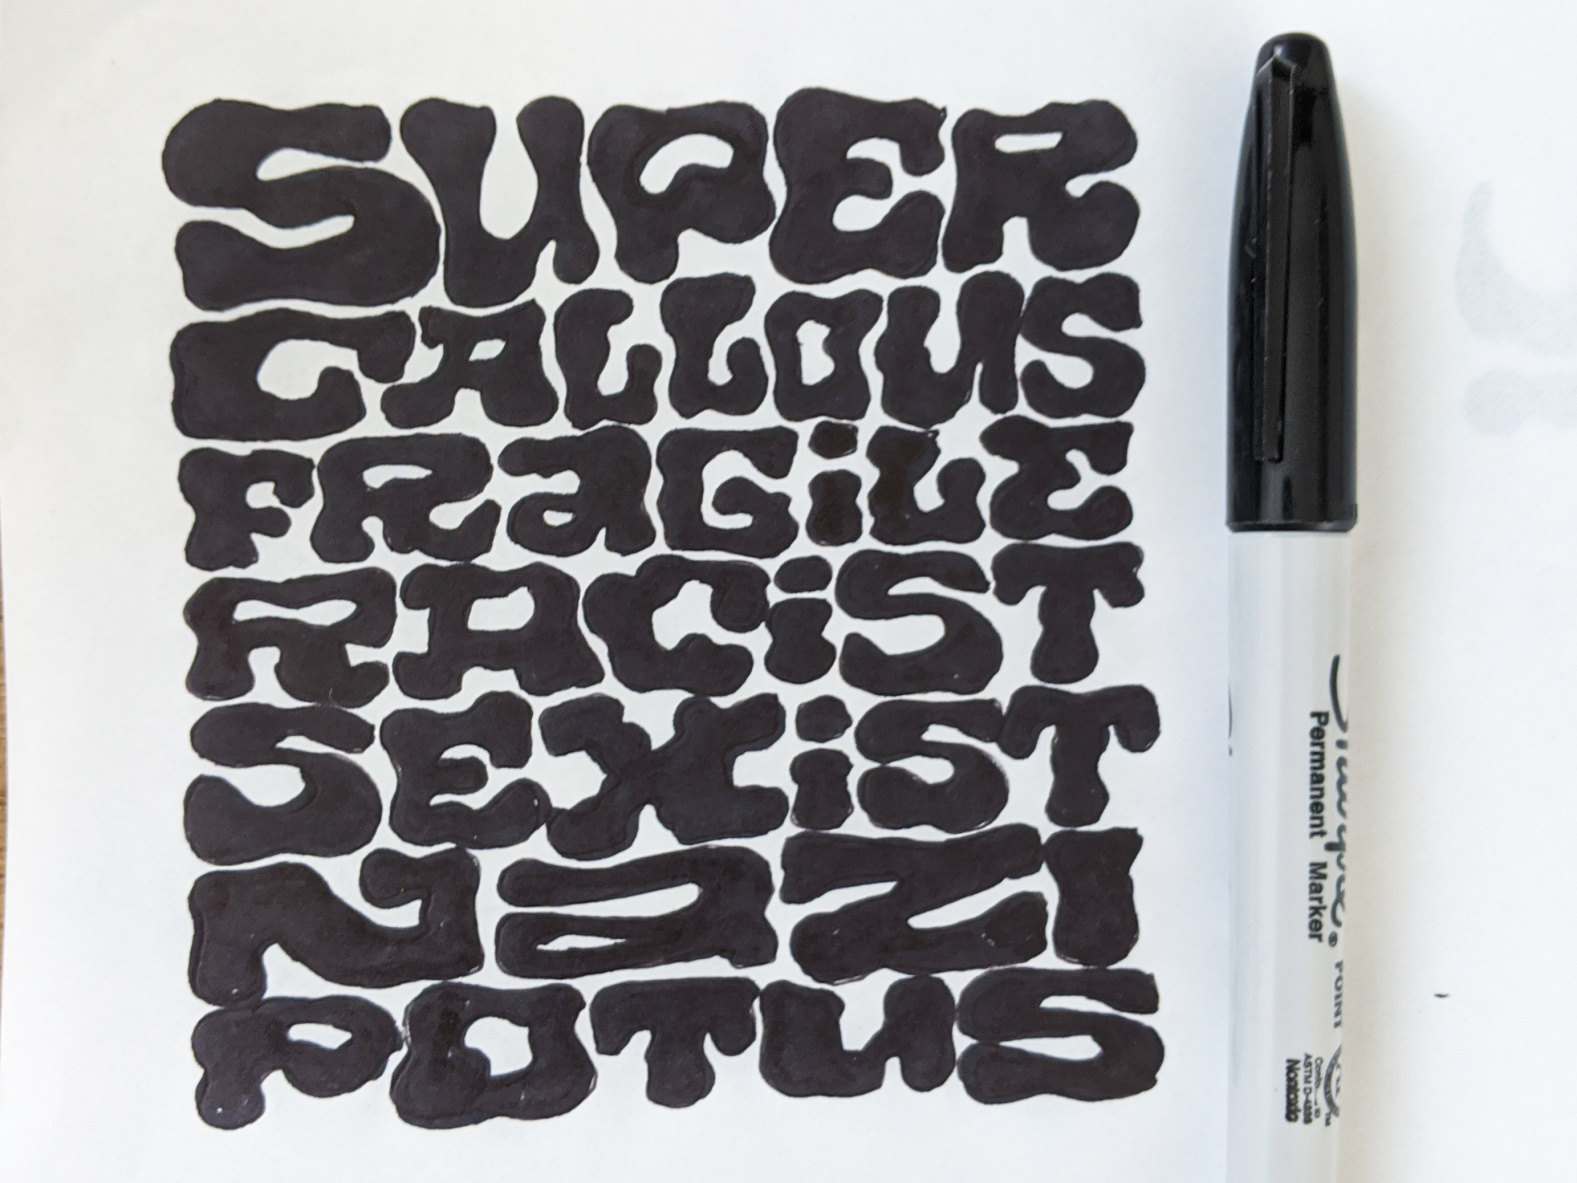 SUPER
CALLOUS
FRaGiLE
RACiST
SEXiST
NaZI
POTUS
Sharpie®
Permanent Marker
POINT
ASTM D-4236
Nontoxic